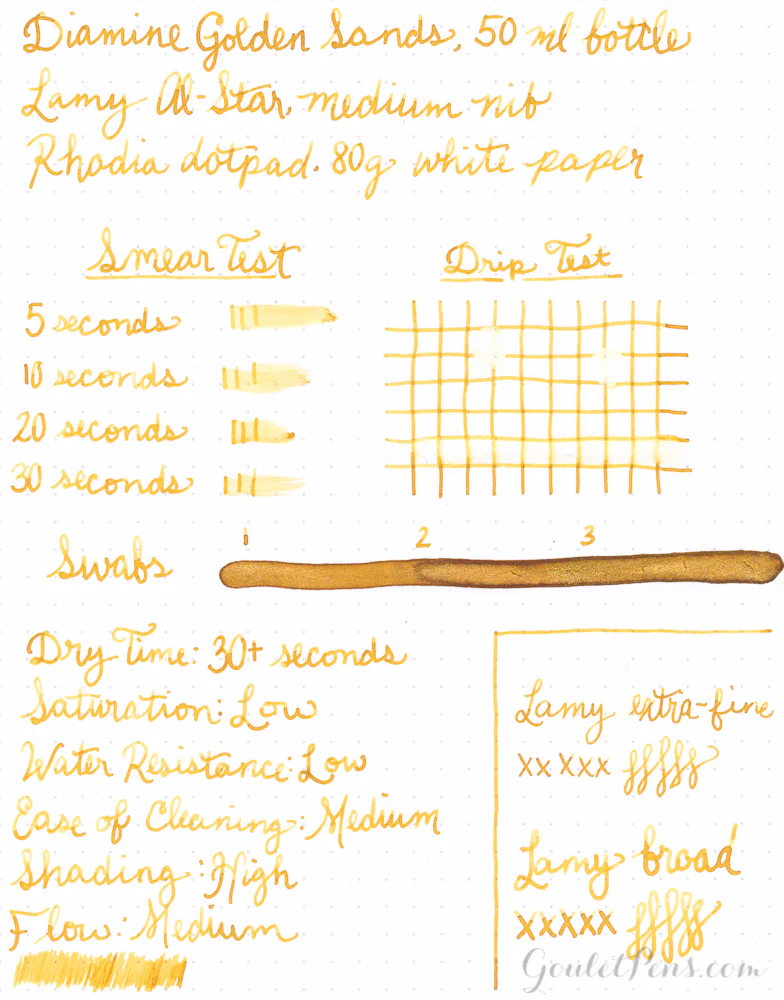 Diamine Golden Sands, 50 ml bottle
Lamy Al-Star, medium nib
Rhodia dotpad. 80g white paper
Smear Test
5 seconds
10 seconds
20 seconds
30 seconds
Drip Test
Swabs
1 2 3
Dry Time: 30+ seconds
Saturation: Low
Water Resistance: Low
Ease of Cleaning: Medium
Shading: High
Flow: Medium
Lamy extra-fine
xx xxx fffff
Lamy broad
xxxxx fffff
GouletPens.com